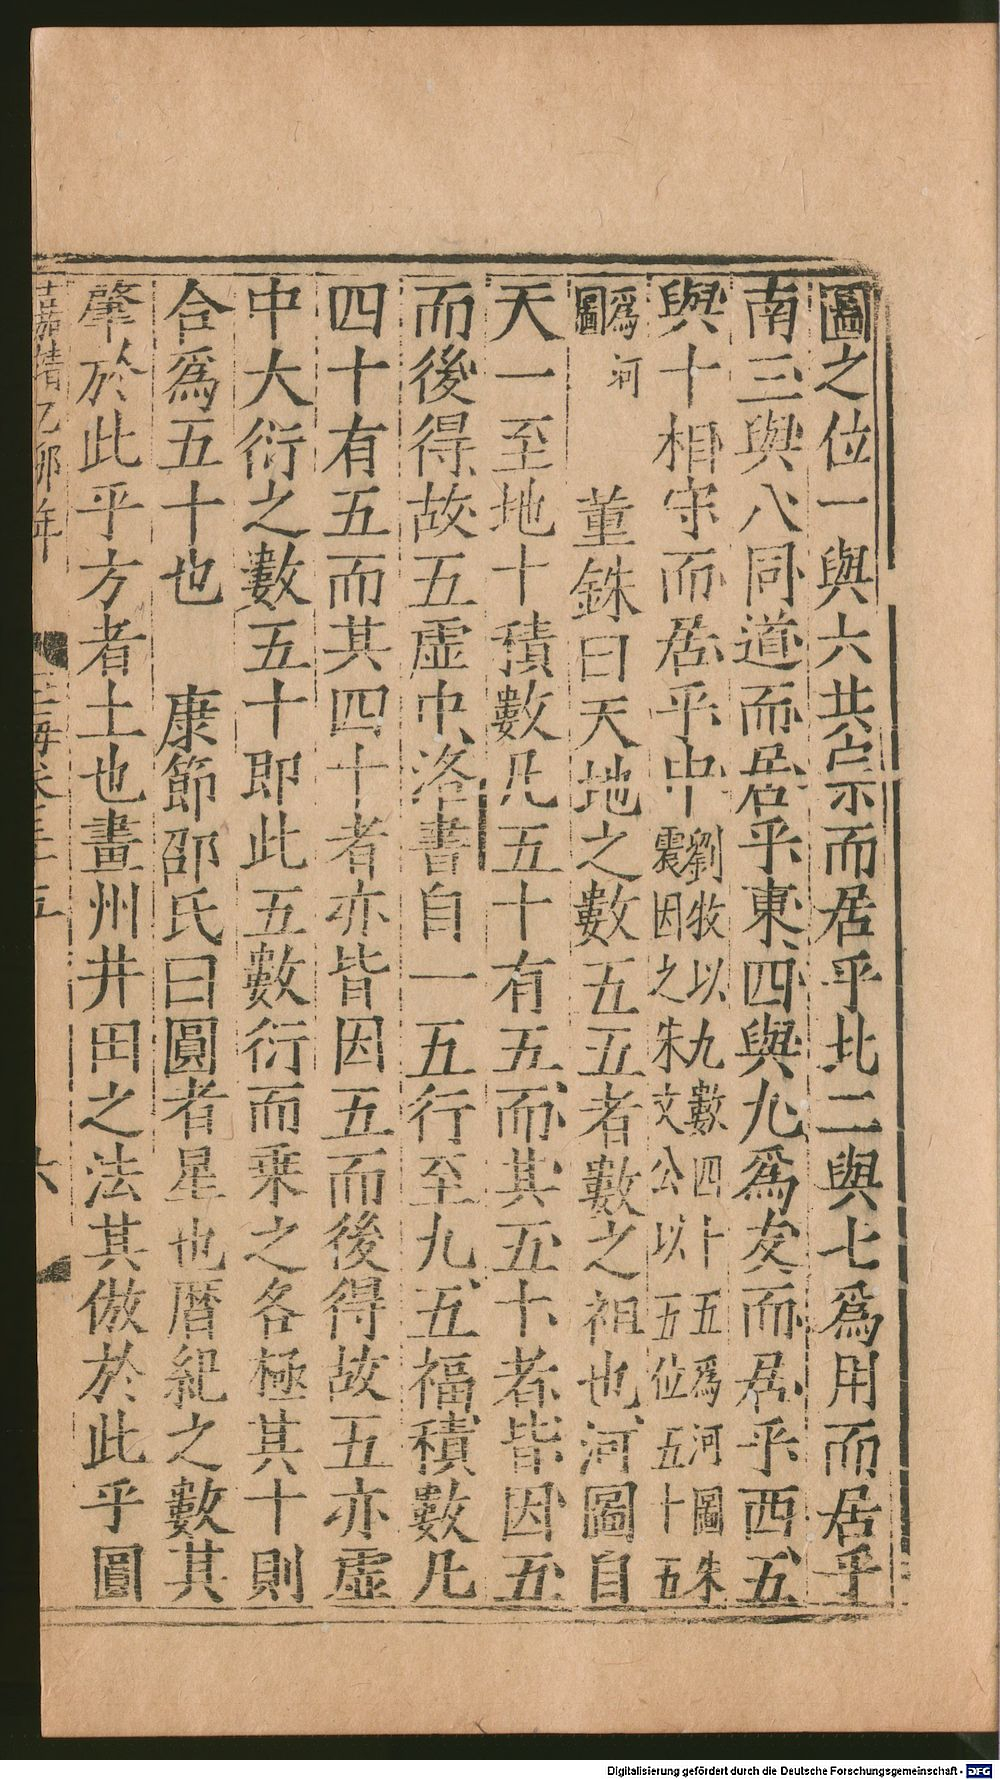 圖之位一與六共宗而居乎北二與七爲用而居乎
南三與八同道而居乎東四與九爲友而居乎西五
與十相守而居乎中劉牧以九數四十五爲河圖朱
震因之朱文公以五位五十五
爲河
圖
董銖曰天地之數五五者數之祖也河圖自
天一至地十積數凡五十有五而其五十者皆因五
而後得故五虛中洛書自一五行至九五福積數凡
四十有五而其四十者亦皆因五而後得故五亦虛
中大衍之數五十即此五數衍而乗之各極其十則
合爲五十也 康節邵氏曰圓者星也暦紀之數其
肇於此乎方者土也畫州井田之法其倣於此乎圓
嘉靖乙卯年
玉海卷三十五
六
Digitalisierung gefördert durch die Deutsche Forschungsgemeinschaft - DFG